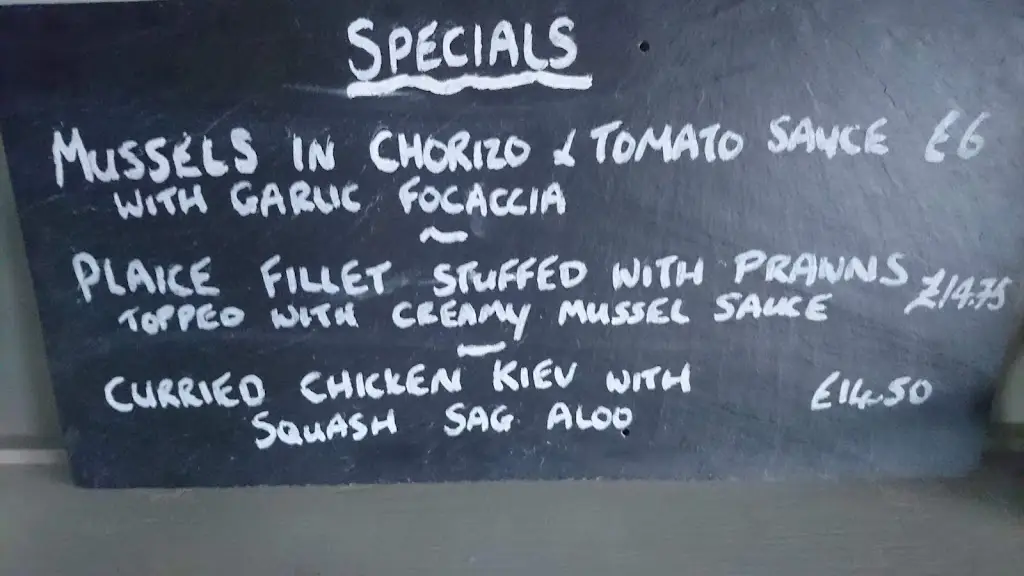 SPECIALS
MUSSELS IN CHORIZO & TOMATO SAUCE £6
WITH GARLIC FOCACCIA
~
PLAICE FILLET STUFFED WITH PRAWNS £14.75
TOPPED WITH CREAMY MUSSEL SAUCE
~
CURRIED CHICKEN KIEV WITH £14.50
SQUASH SAG ALOO